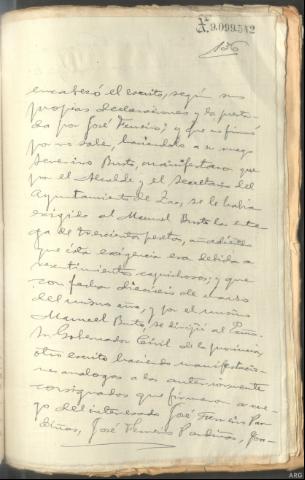 A.9.099.542
136
encabezó el escrito, según sus
propias declaraciones y la presta-
da por José Ferreiro; y que no firmó
por no saber, haciéndolo a su ruego
Severino Busto, manifestaron que
por el Alcalde y el Secretario del
Ayuntamiento de Zas, se le había
exigido al Manuel Busto la entre-
ga de trescientas pesetas, añadiendo
que esta exigencia era debida a
resentimientos caprichosos; y que
con fecha dieciseis de marzo
del mismo año, y por el mismo
Manuel Busto, se dirigió al Excmo.
Sr. Gobernador Civil de la provincia,
otro escrito haciendo manifestacio-
nes analogas a las anteriormente
consignadas que firmaron a rue-
go del interesado José Ferreiro Par-
diñas, José Romero Pardiñas,
ARG